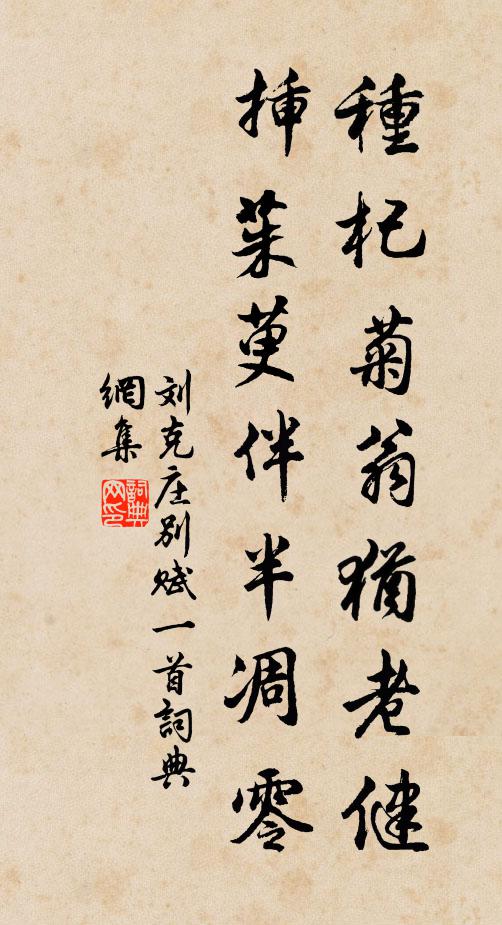 種杞菊翁猶老健
挿茱萸伴半凋零
刘克庄别赋一首詞典
網集
詞典
网印